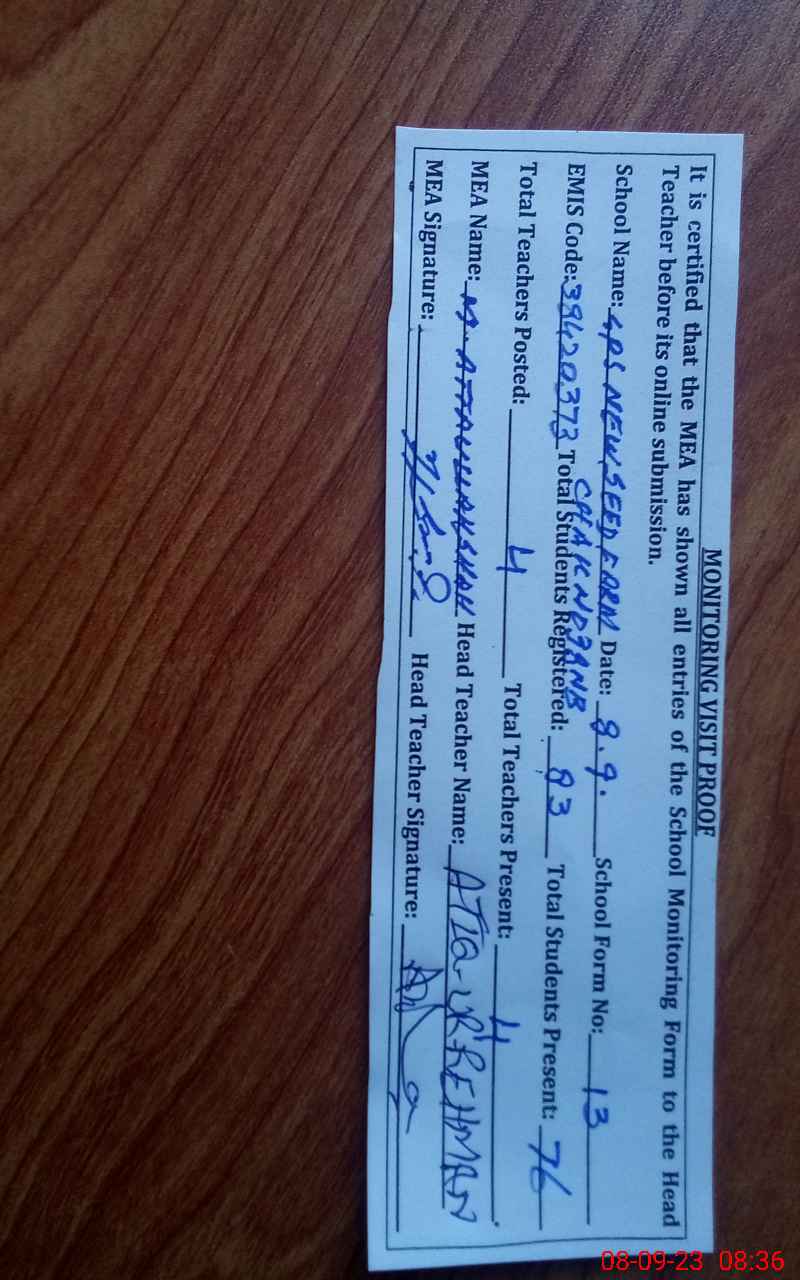 MONITORING VISIT PROOF
It is certified that the MEA has shown all entries of the School Monitoring Form to the Head
Teacher before its online submission.
School Name: GPS NEW SEED FARM Date: 8.9. School Form No: 13
CHAK NO 9ANB
EMIS Code: 38420373 Total Students Registered: 83 Total Students Present: 76
Total Teachers Posted: 4 Total Teachers Present: 4
MEA Name: M. ATTAULLAH SHAH Head Teacher Name: ATIQ-UR-REHMAN
MEA Signature: Head Teacher Signature:
08-09-23 08:36